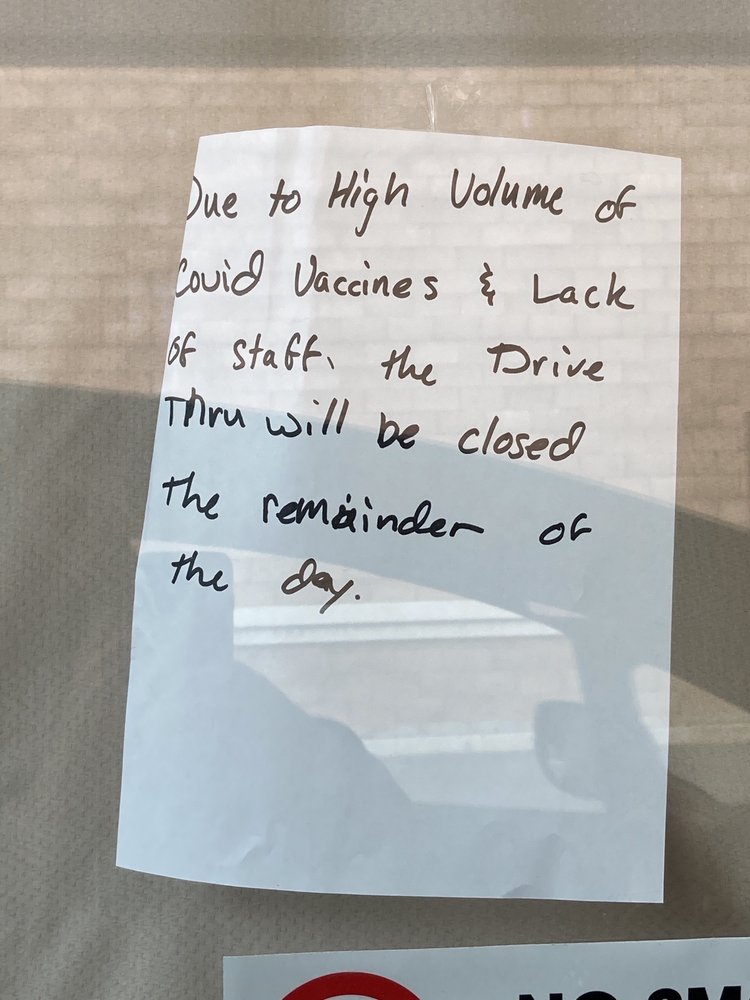 Due to High Volume of
Covid Vaccines & Lack
of staff, the Drive
Thru will be closed
the remainder of
the day.
NO